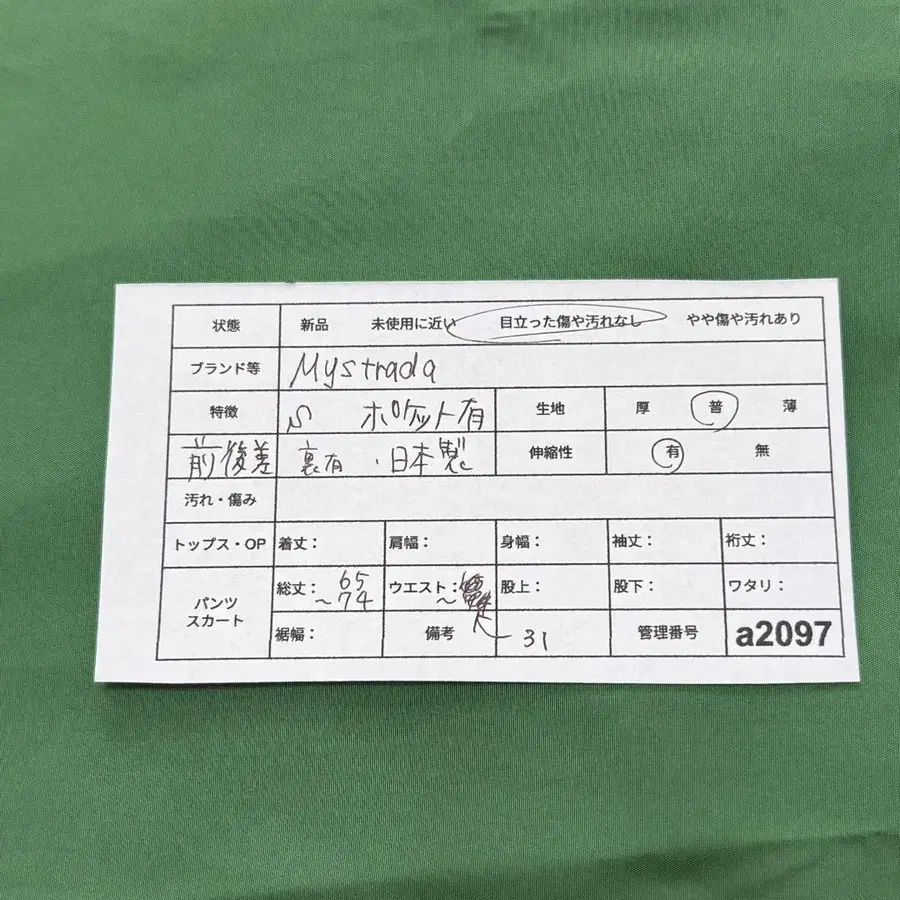 状態 新品 未使用に近い 目立った傷や汚れなし やや傷や汚れあり
ブランド等 Mystrada
特徴 S ポケット有 生地 厚 普 薄
前後差 裏有・日本製 伸縮性 有 無
汚れ・傷み
トップス・OP 着丈： 肩幅： 身幅： 袖丈： 裄丈：
パンツ スカート 総丈：65～74 ウエスト：～ 股上： 股下： ワタリ：
裾幅： 備考 31 管理番号 a2097